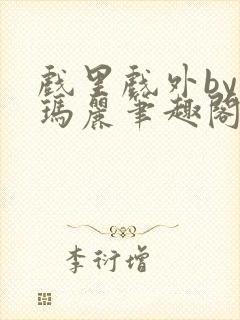 戲里戲外by
瑪麗笔趣閣
李衍增